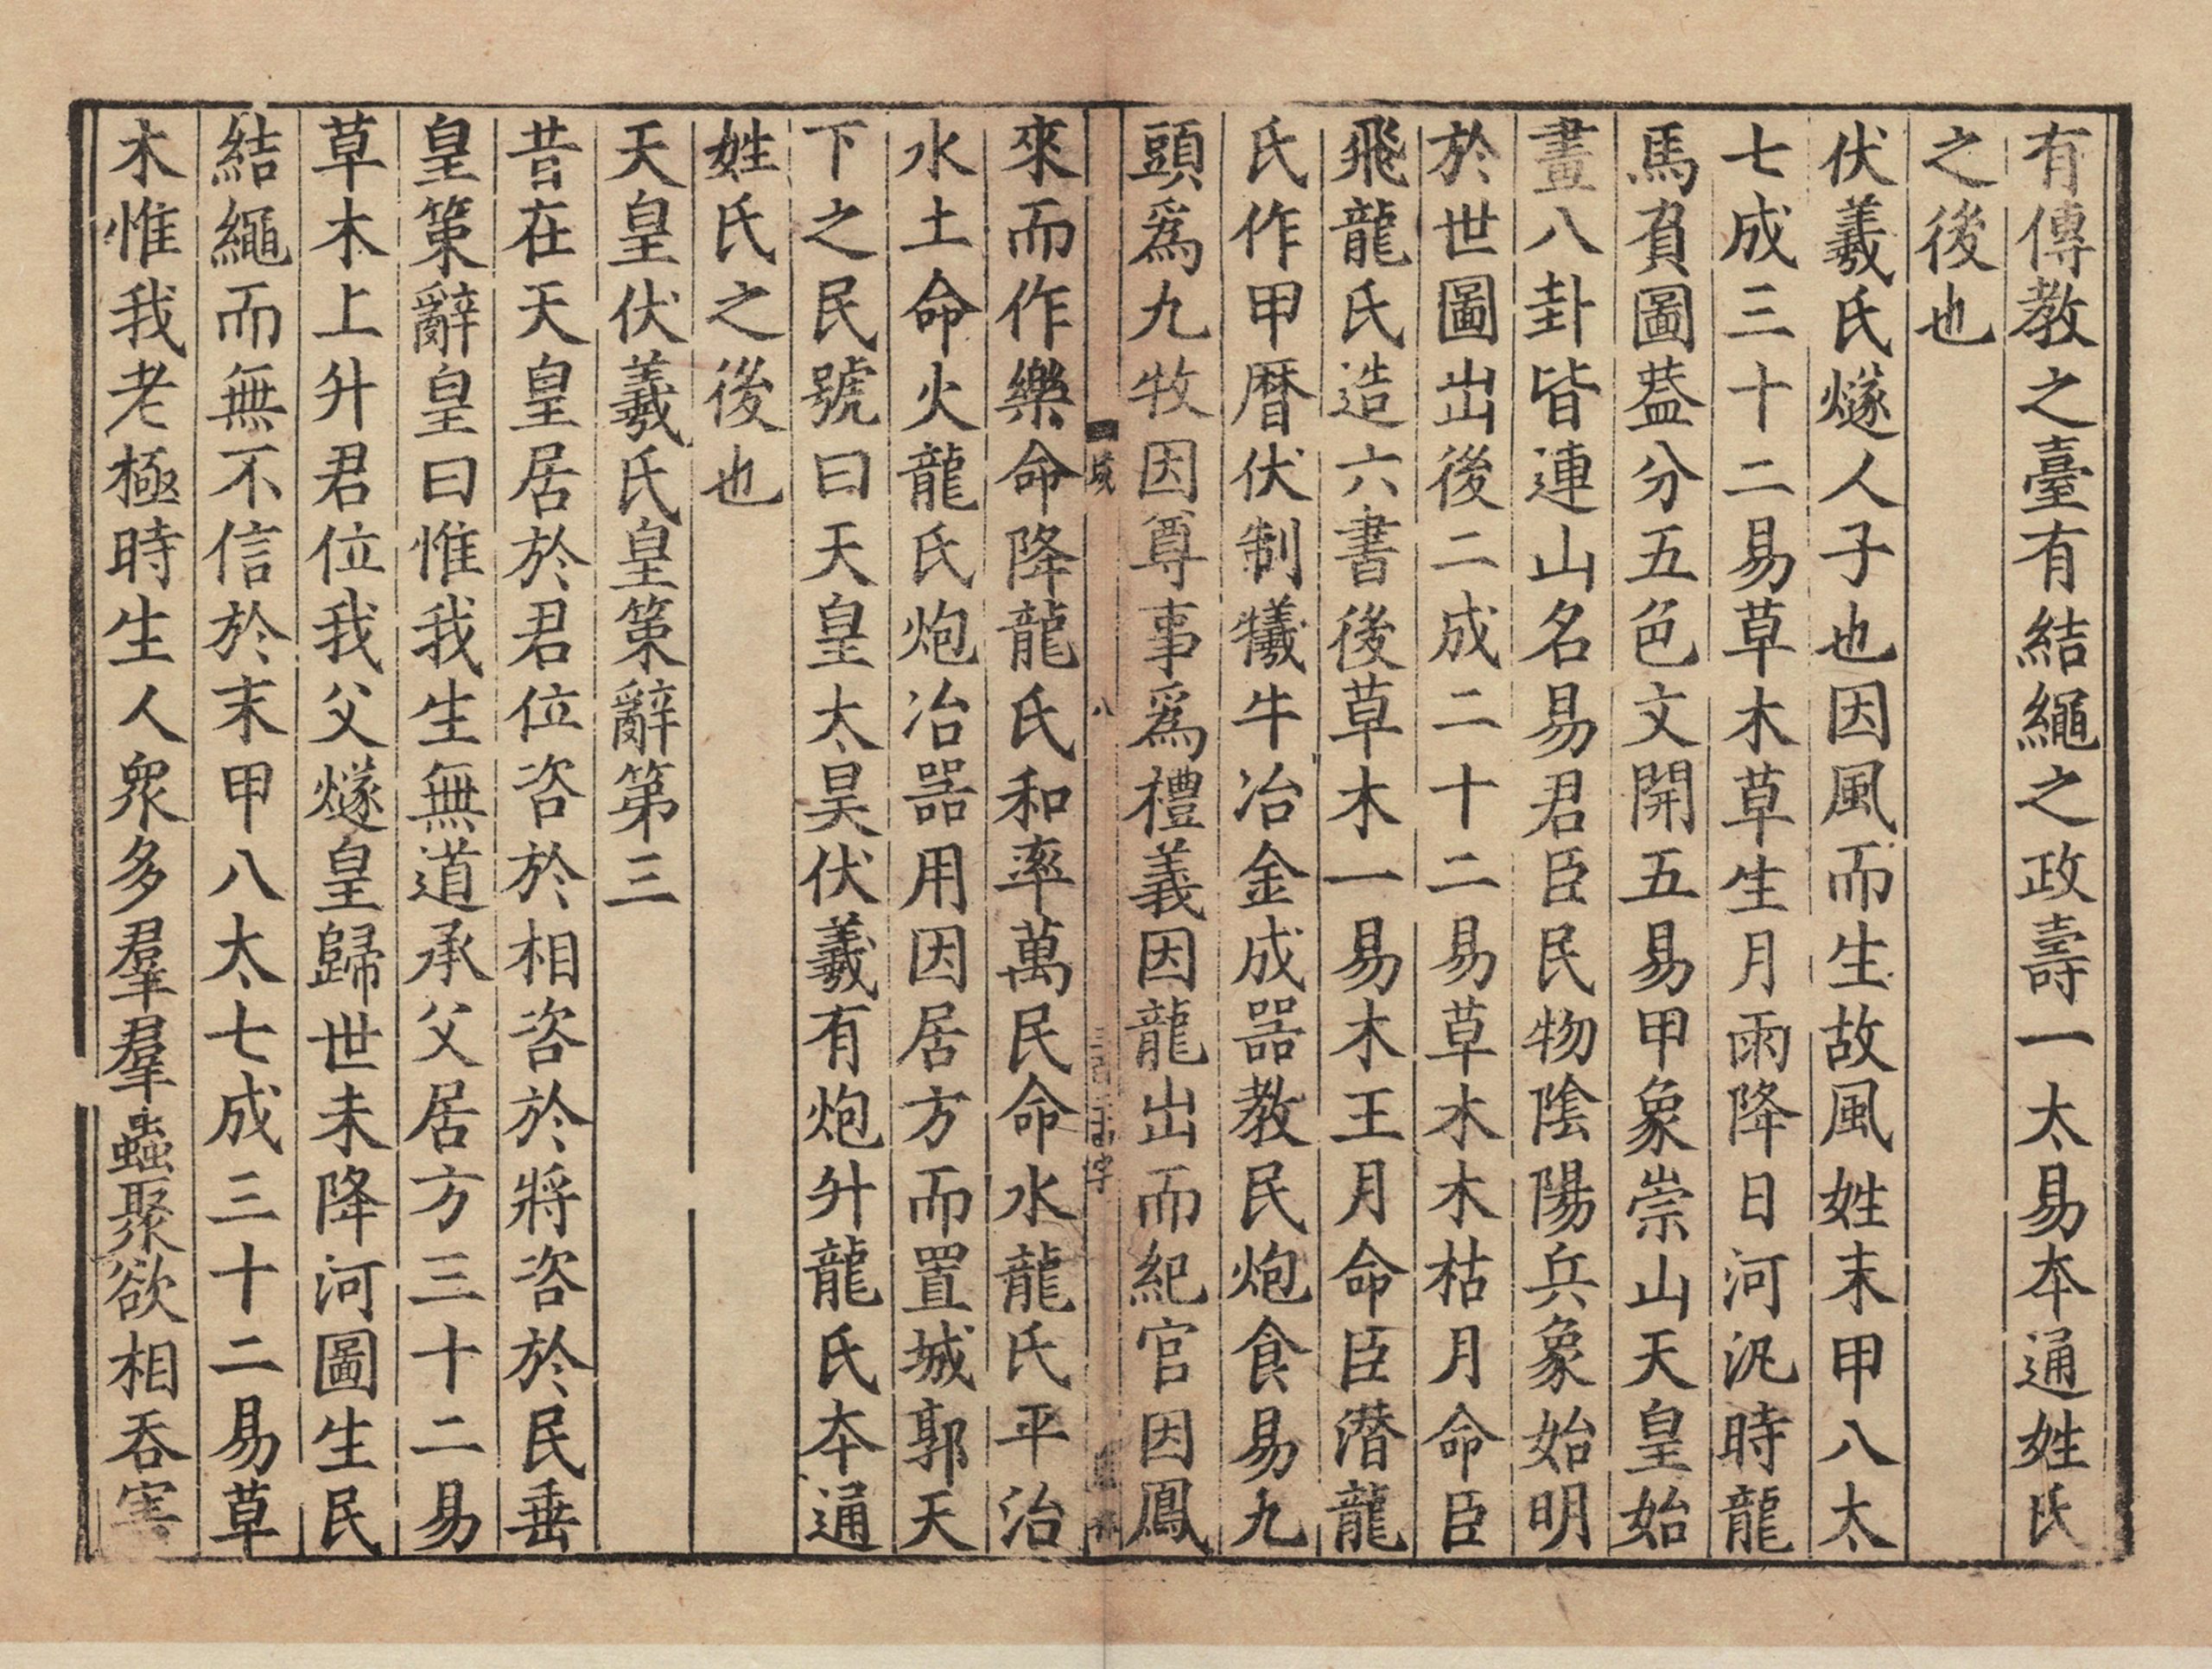 有傳教之臺有結繩之政壽一太易本通姓氏
之後也
伏羲氏燧人子也因風而生故風姓末甲八太
七成三十二易草木草生月雨降日河汎時龍
馬負圖葢分五色文開五易甲象崇山天皇始
畫八卦皆連山名易君臣民物陰陽兵象始明
於世圖出後二成二十二易草木木枯月命臣
飛龍氏造六書後草木一易木王月命臣潜龍
氏作甲曆伏制犧牛冶金成器教民炮食易九
頭爲九牧因尊事爲禮義因龍出而紀官因鳳
來而作樂命降龍氏和率萬民命水龍氏平治
水土命火龍氏炮冶器用因居方而置城郭天
下之民號曰天皇太昊伏羲有炮升龍氏本通
姓氏之後也
天皇伏羲氏皇策辭第三
昔在天皇居於君位咨於相咨於將咨於民垂
皇策辭皇曰惟我生無道承父居方三十二易
草木上升君位我父燧皇歸世未降河圖生民
結繩而無不信於末甲八太七成三十二易草
木惟我老極時生人衆多羣羣蟲聚欲相吞害